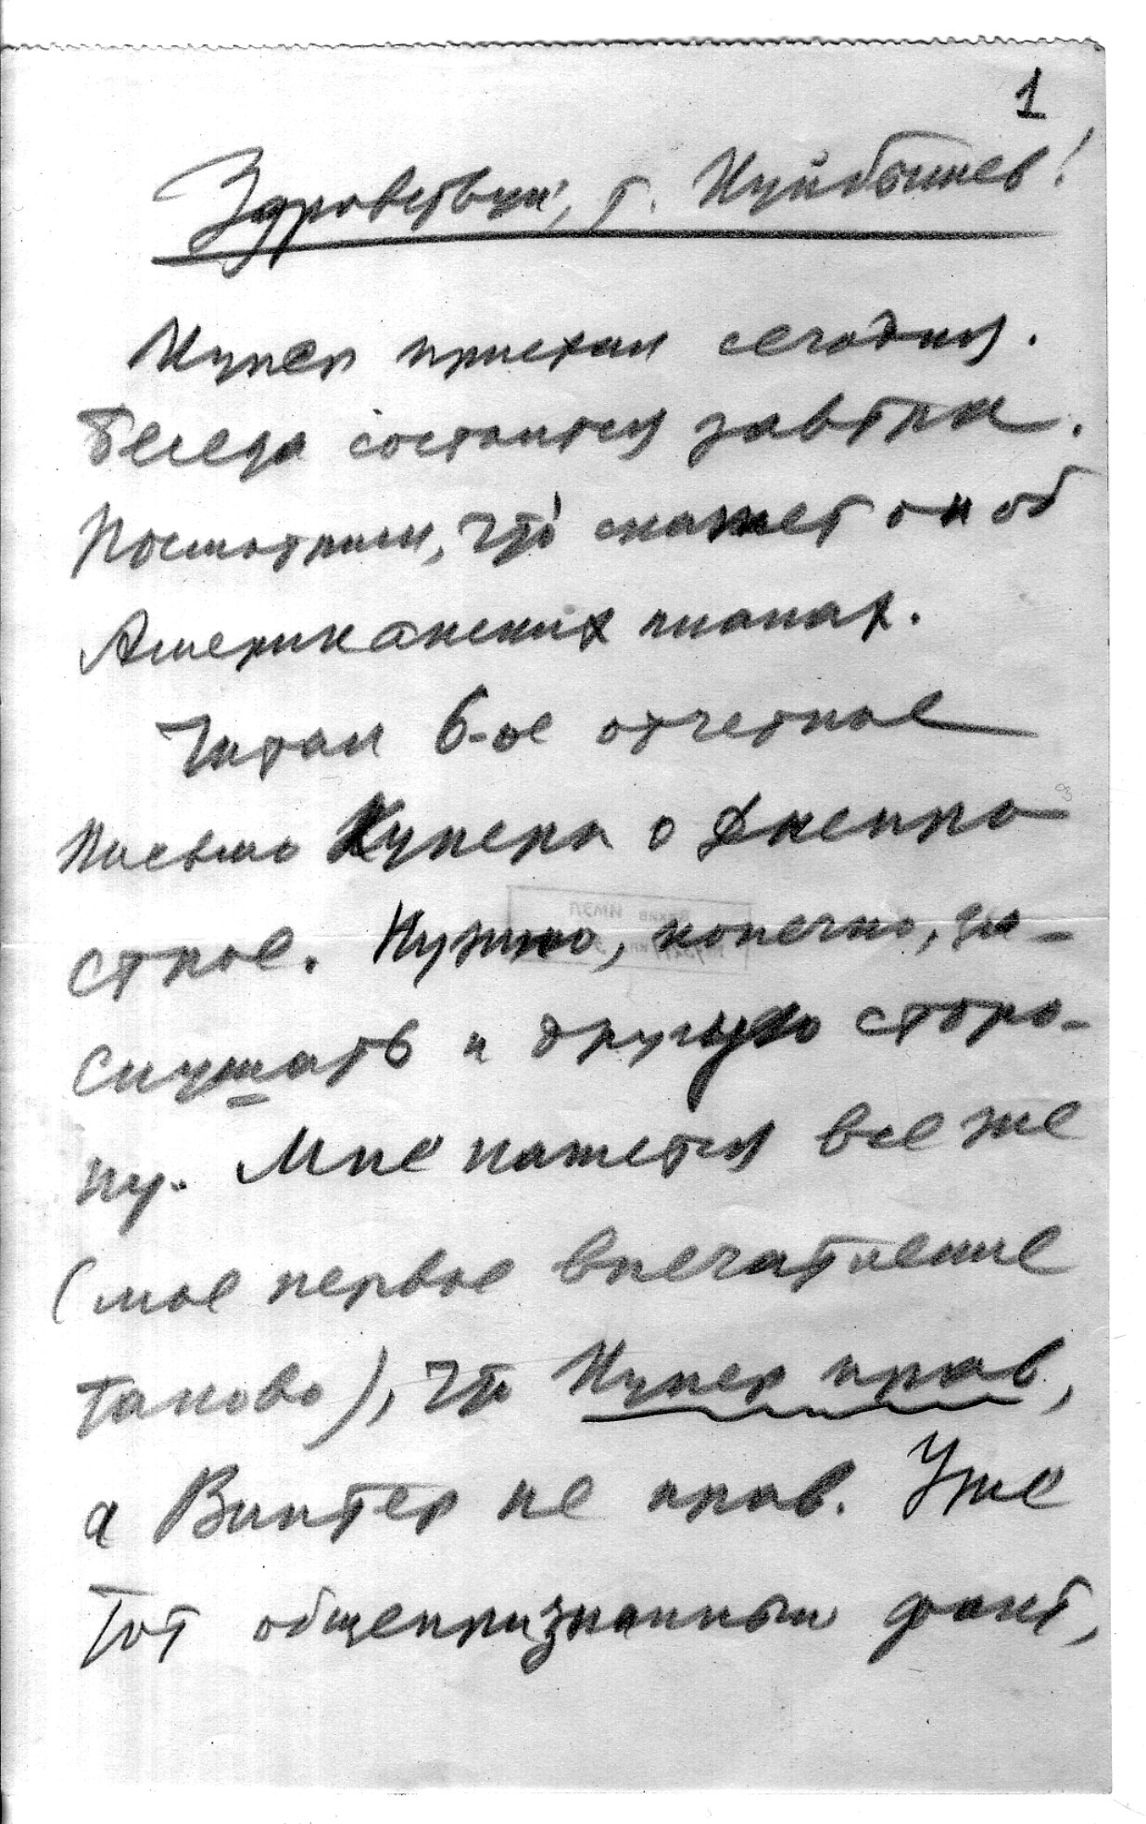 1
Здравствуй, т. Куйбышев!
Купер приехал сегодня.
Беседа состоится завтра.
Посмотрим, что скажет он об
Американских планах.
Читал 6-ое отчетное
письмо Купера о Днепро
строе. Нужно, конечно, за-
слушать и другую сторо-
ну. Мне кажется все же
(мое первое впечатление
таково), что Купер прав,
а Винтер не прав. Уже
тот общепризнанный факт,